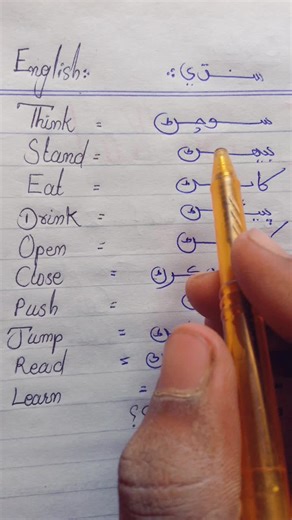 English:: سنڌي::
Think = سوچڻ
Stand = بيهڻ
Eat = کائڻ
Drink = پيئڻ
Open =
Close =
Push =
Jump =
Read =
Learn =